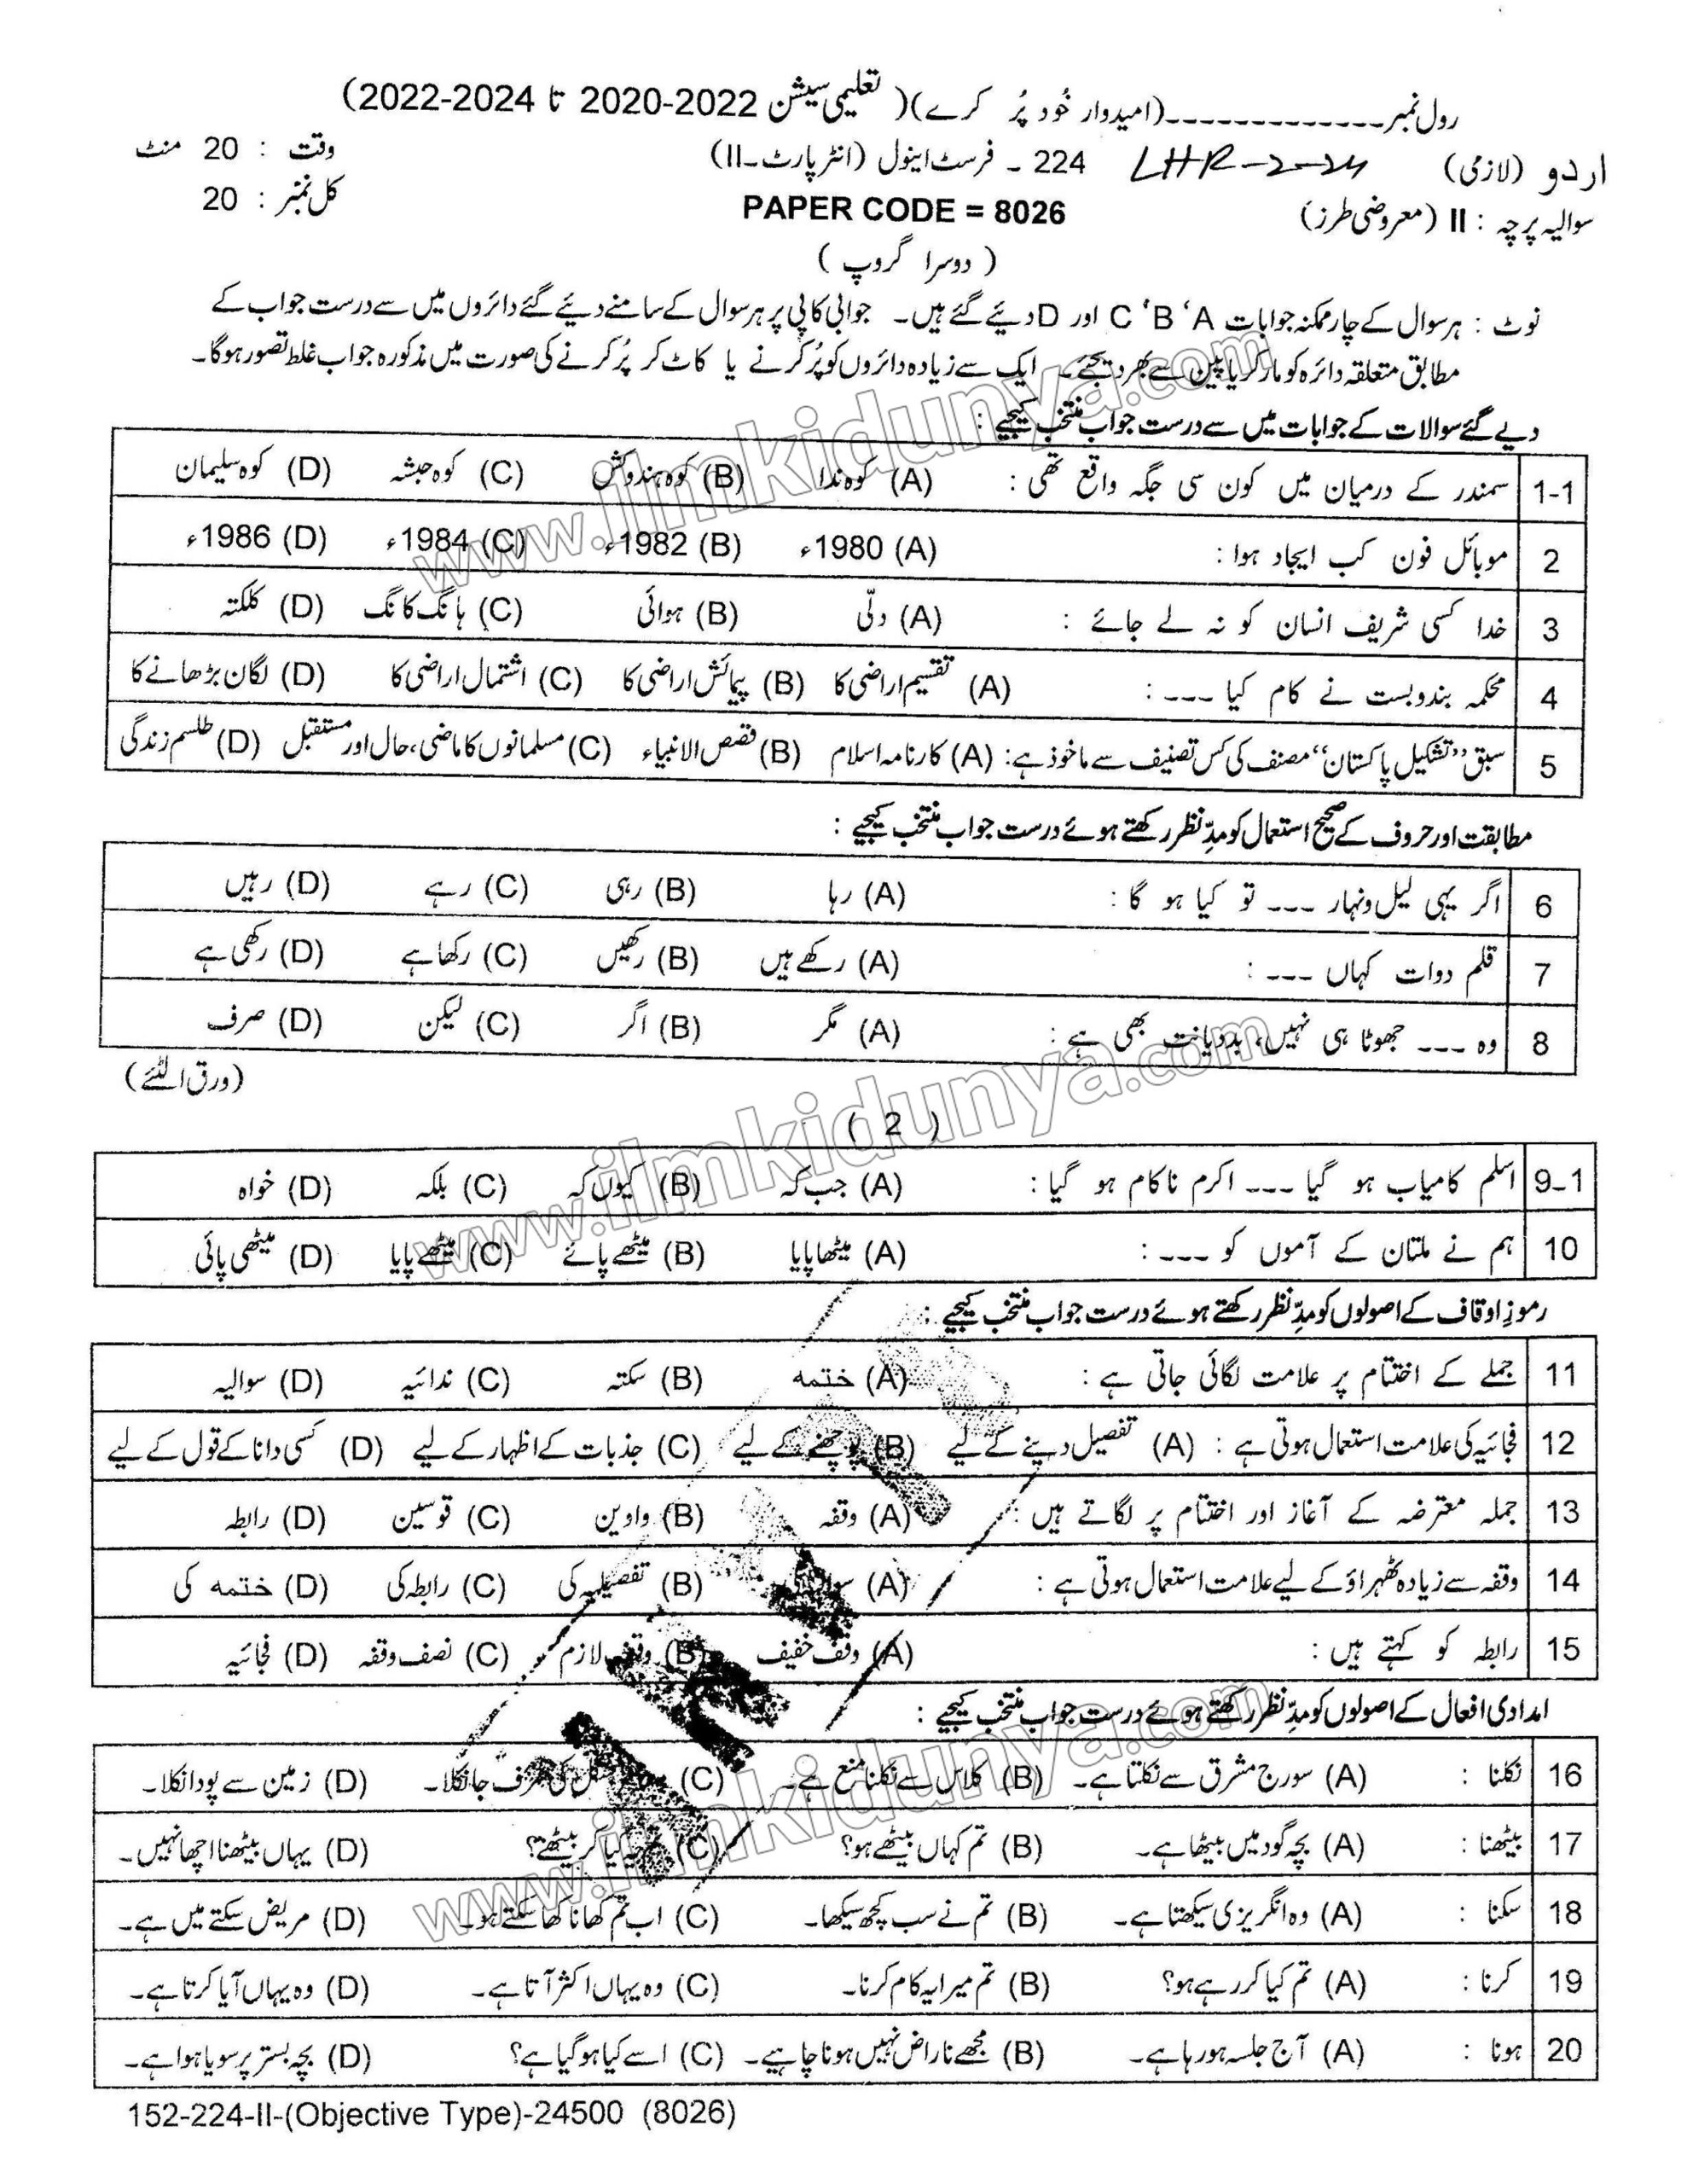 رول نمبر-------------(امیدوار خُود پُر کرے)( تعلیمی سیشن 2022-2020 تا 2024-2022)
اردو (لازمی) LHR-2-24 224 - فرسٹ اینول (انٹر پارٹ-II) وقت : 20 منٹ
سوالیہ پرچہ : II (معروضی طرز) PAPER CODE = 8026 کل نمبر : 20
( دوسرا گروپ )
نوٹ : ہر سوال کے چار ممکنہ جوابات A ‘B ‘C اور D دئیے گئے ہیں۔ جوابی کاپی پر ہر سوال کے سامنے دئیے گئے دائروں میں سے درست جواب کے
مطابق متعلقہ دائرہ کو مارکر یا پین سے بھر دیجئے۔ ایک سے زیادہ دائروں کو پُر کرنے یا کاٹ کر پُر کرنے کی صورت میں مذکورہ جواب غلط تصور ہوگا۔
دیے گئے سوالات کے جوابات میں سے درست جواب منتخب کیجیے :
1-1 سمندر کے درمیان میں کون سی جگہ واقع تھی : (A) کوہ ندا (B) کوہ ہندوکش (C) کوہ حبشہ (D) کوہ سلیمان
2 موبائل فون کب ایجاد ہوا : (A) 1980ء (B) 1982ء (C) 1984ء (D) 1986ء
3 خدا کسی شریف انسان کو نہ لے جائے : (A) دلّی (B) ہوائی (C) ہانگ کانگ (D) کلکتہ
4 محکمہ بندوبست نے کام کیا --- : (A) تقسیم اراضی کا (B) پیمائش اراضی کا (C) اشتمال اراضی کا (D) لگان بڑھانے کا
5 سبق ’’تشکیل پاکستان‘‘ مصنف کی کس تصنیف سے ماخوذ ہے: (A) کارنامہ اسلام (B) قصص الانبیاء (C) مسلمانوں کا ماضی، حال اور مستقبل (D) طلسم زندگی
مطابقت اور حروف کے صحیح استعمال کو مدِّ نظر رکھتے ہوئے درست جواب منتخب کیجیے :
6 اگر یہی لیل و نہار --- تو کیا ہو گا : (A) رہا (B) رہی (C) رہے (D) رہیں
7 قلم دوات کہاں --- : (A) رکھے ہیں (B) رکھیں (C) رکھا ہے (D) رکھی ہے
8 وہ --- جھوٹا ہی نہیں، بددیانت بھی ہے : (A) مگر (B) اگر (C) لیکن (D) صرف
(ورق الٹئے)
( 2 )
9-1 اسلم کامیاب ہو گیا --- اکرم ناکام ہو گیا : (A) جب کہ (B) کیوں کہ (C) بلکہ (D) خواہ
10 ہم نے ملتان کے آموں کو --- : (A) میٹھا پایا (B) میٹھے پائے (C) میٹھے پایا (D) میٹھی پائی
رموزِ اوقاف کے اصولوں کو مدِّ نظر رکھتے ہوئے درست جواب منتخب کیجیے :
11 جملے کے اختتام پر علامت لگائی جاتی ہے : (A) ختمہ (B) سکتہ (C) ندائیہ (D) سوالیہ
12 فجائیہ کی علامت استعمال ہوتی ہے : (A) تفصیل دینے کے لیے (B) پوچھنے کے لیے (C) جذبات کے اظہار کے لیے (D) کسی دانا کے قول کے لیے
13 جملہ معترضہ کے آغاز اور اختتام پر لگاتے ہیں : (A) وقفہ (B) واوین (C) قوسین (D) رابطہ
14 وقفہ سے زیادہ ٹھہراؤ کے لیے علامت استعمال ہوتی ہے : (A) (B) تفصیلیہ کی (C) رابطہ کی (D) ختمہ کی
15 رابطہ کو کہتے ہیں : (A) وقف خفیف (B) وقف لازم (C) نصف وقفہ (D) فجائیہ
امدادی افعال کے اصولوں کو مدِّ نظر رکھتے ہوئے درست جواب منتخب کیجیے :
16 نکلنا : (A) سورج مشرق سے نکلتا ہے۔ (B) کلاس سے نکلنا منع ہے۔ (C) کی طرف جا نکلا۔ (D) زمین سے پودا نکلا۔
17 بیٹھنا : (A) بچہ گود میں بیٹھا ہے۔ (B) تم کہاں بیٹھے ہو؟ (C) کیا کر بیٹھے؟ (D) یہاں بیٹھنا اچھا نہیں۔
18 سکنا : (A) وہ انگریزی سیکھتا ہے۔ (B) تم نے سب کچھ سیکھا۔ (C) اب تم کھانا کھا سکتے ہو۔ (D) مریض سکتے میں ہے۔
19 کرنا : (A) تم کیا کر رہے ہو؟ (B) تم میرا یہ کام کرنا۔ (C) وہ یہاں اکثر آتا ہے۔ (D) وہ یہاں آیا کرتا ہے۔
20 ہونا : (A) آج جلسہ ہو رہا ہے۔ (B) مجھے ناراض نہیں ہونا چاہیے۔ (C) اسے کیا ہو گیا ہے؟ (D) بچہ بستر پر سویا ہوا ہے۔
152-224-II-(Objective Type)-24500 (8026)
www.ilmkidunya.com
www.ilmkidunya.com
www.ilmkidunya.com